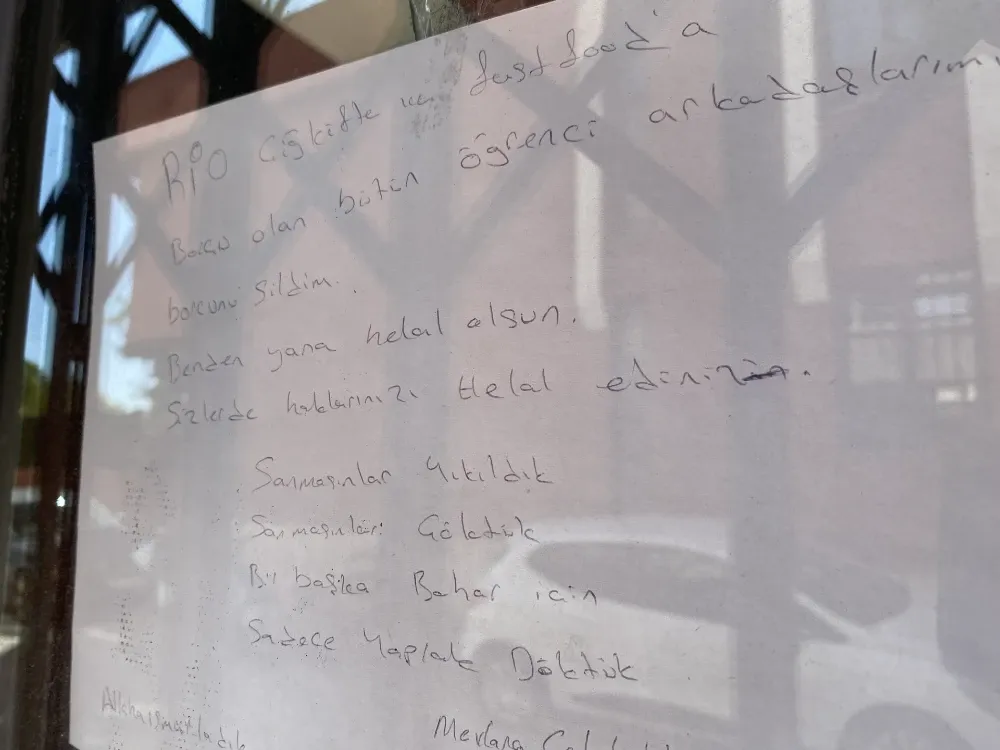 RİO Çiğköfte ve fastfood'a
Borcu olan bütün öğrenci arkadaşlarım
borcunu Sildim.
Benden yana helal olsun.
Sizlerde haklarınızı Helal ediniz.
Sanmasınlar Yıkıldık
Sanmasınlar Çöktük
Bir başka Bahar için
Sadece Yaprak Döktük
Allahaısmarladık
Mevlana